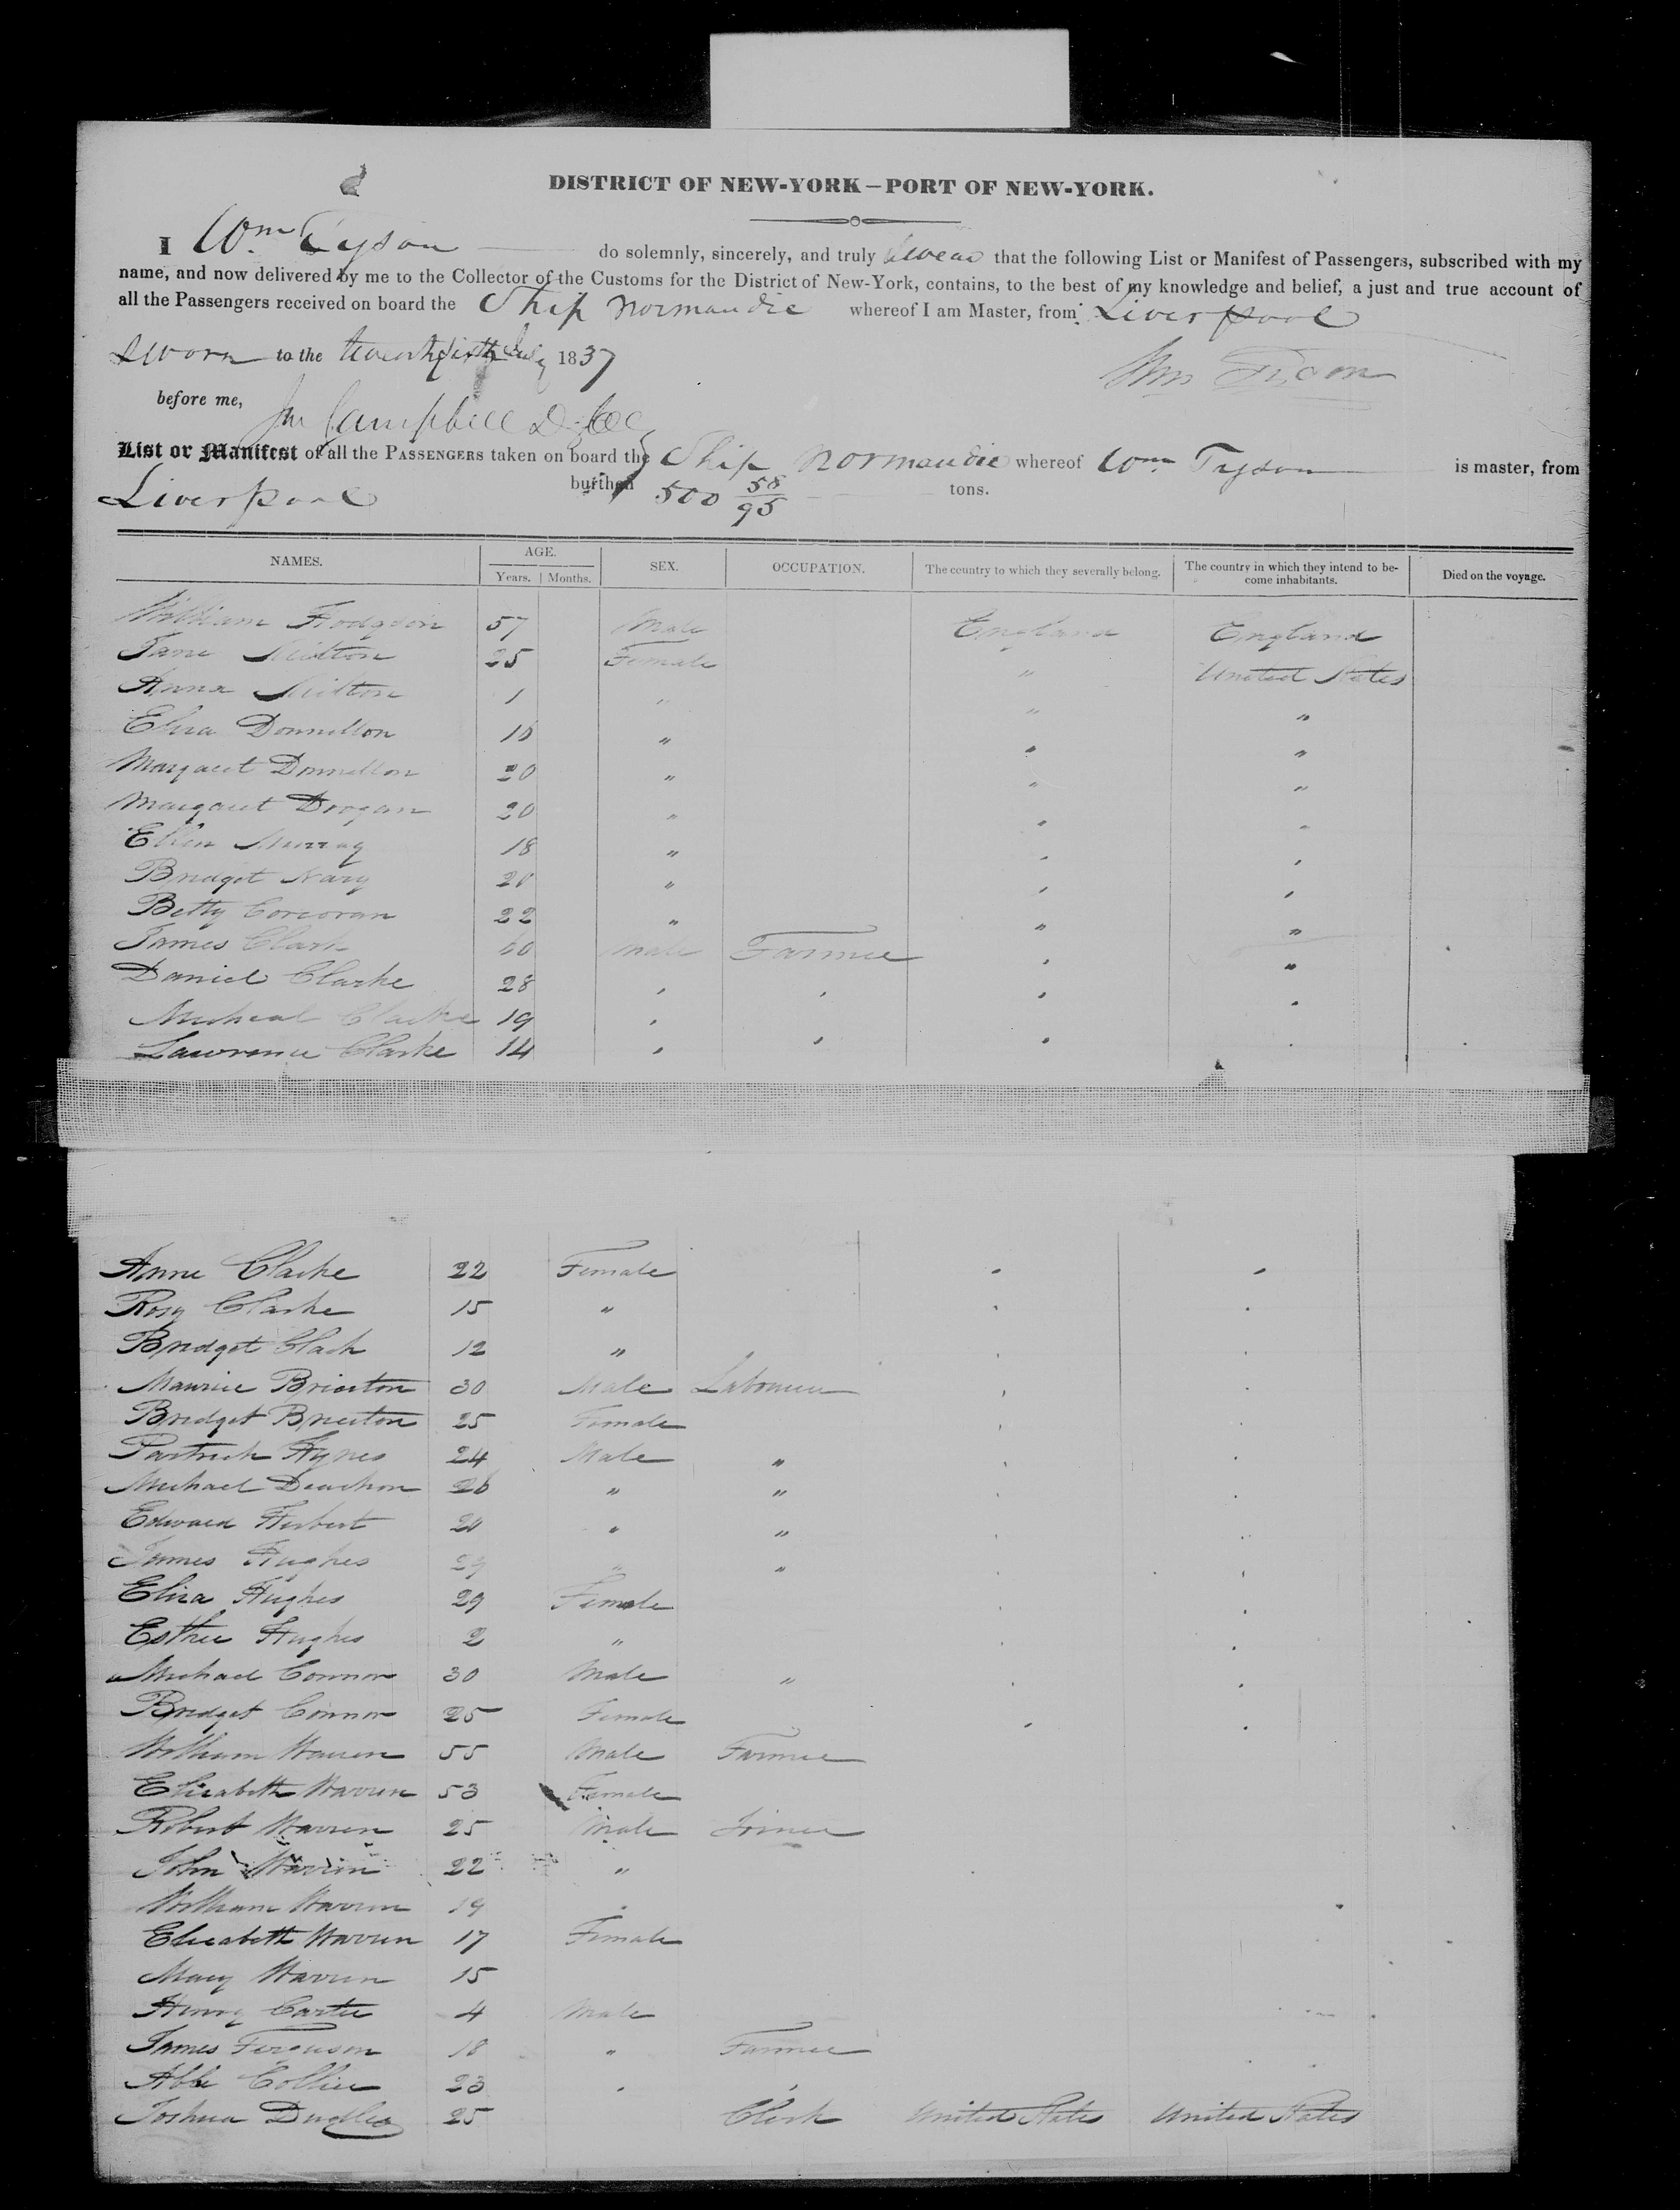 DISTRICT OF NEW-YORK – PORT OF NEW-YORK.
I Wm Tyson do solemnly, sincerely, and truly swear that the following List or Manifest of Passengers, subscribed with my
name, and now delivered by me to the Collector of the Customs for the District of New-York, contains, to the best of my knowledge and belief, a just and true account of
all the Passengers received on board the Ship Normandie whereof I am Master, from Liverpool
Sworn to the 1837
Wm Tyson
before me,
Campbell
List or Manifest of all the PASSENGERS taken on board the Ship Normandie whereof Wm Tyson is master, from
Liverpool burthen 500 58/95 tons.
NAMES. AGE. SEX. OCCUPATION. The country to which they severally belong. The country in which they intend to be-
come inhabitants. Died on the voyage.
Years. Months.
William Hodgson 57 Male England England
Jane Milton 25 Female " United States
Anna Milton 1 " " "
Eliza Donnellon 16 " " "
Margaret Donnellon 20 " " "
Margaret Drogan 20 " " "
Ellen Murray 18 " " "
Bridget Nary 20 " " "
Betty Corcoran 22 " " "
James Clark 60 Male Farmer " "
Daniel Clarke 28 " " " "
Micheal Clarke 19 " " "
Lawrence Clarke 14 " " " "
Anne Clarke 22 Female " "
Rosy Clarke 15 " " "
Bridget Clark 12 " " "
Maurice Brierton 30 Male Labourer " "
Bridget Brierton 25 Female " "
Partrick Hynes 24 Male " " "
Michael 26 " " " "
Edward Herbert 20 " " " "
James Hughes 29 " " " "
Eliza Hughes 29 Female " "
Esther Hughes 2 " " "
Michael Connor 30 Male " " "
Bridget Connor 25 Female " "
William Warren 55 Male Farmer
Elizabeth Warren 53 Female
Robert Warren 25 Male Joiner
John Warren 22 "
William Warren 19 "
Elizabeth Warren 17 Female
Mary Warren 15
Henry Carter 4 Male
James Ferguson 18 " Farmer
Collier 23 " "
Joshua Dudley 25 Clerk United States United States